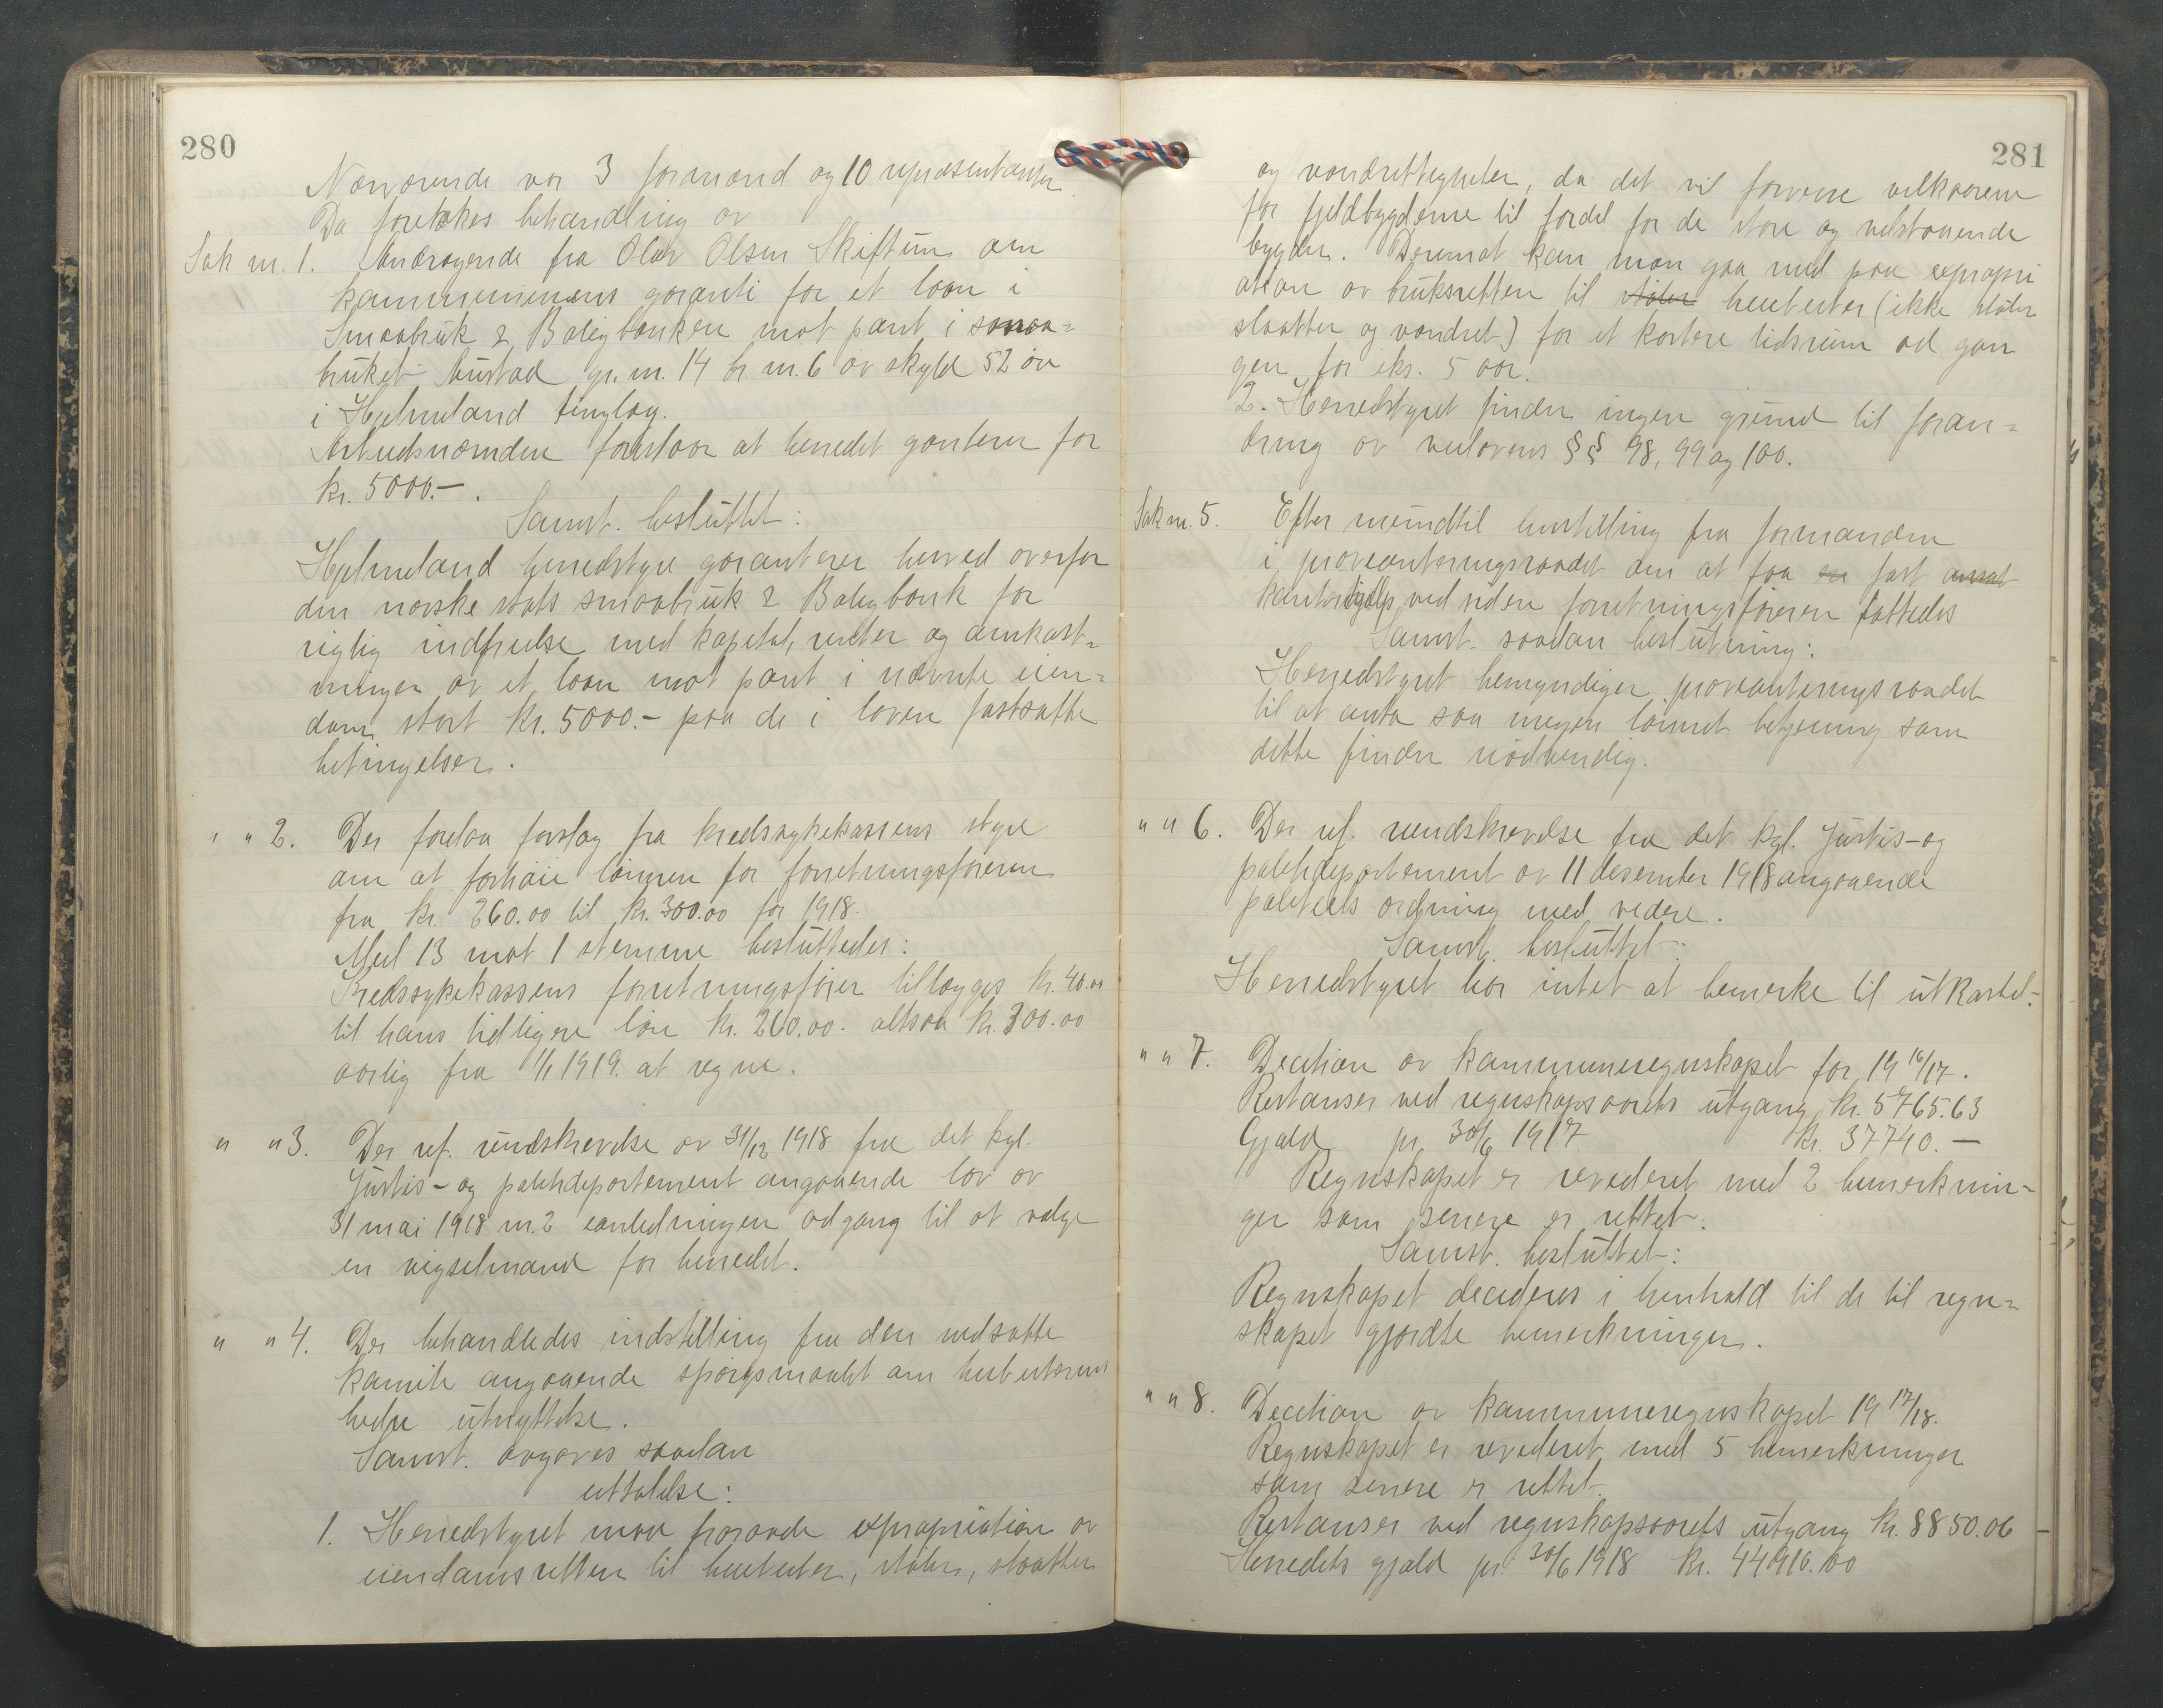 280
Nærværende var 3 formænd og 10 repræsentanter
Da foretokes behandling av
Sak nr. 1. Andragende fra Olav Olsen Skiftun om
kommunenens garanti for et laan i
Smaabruk & Boligbanken mot pant i smaa=
bruket Austad gr. nr. 14 br. nr. 6 av skyld 52 øre
i Hjelmeland tinglag.
Arbeidsnemnden foreslaar at herredet garanterer for
kr. 5000.- .
Samst. besluttet:
Hjelmeland herredstyre garanterer herved overfor
den norske stats smaabruk & Boligbank for
rigtig indfrielse med kapital, renter og omkost=
ninger av et laan mot pant i nævnte eien=
dom stort kr. 5000.- paa de i loven fastsatte
betingelser.
" " 2. Der forelaa forslag fra kredssykekassens styre
om at forhøie lønnen for forretningsføreren
fra kr. 260.00 til kr. 300.00 for 1918.
Med 13 mot 1 stemme besluttedes:
Kredssykekassens forretningsfører tillægges kr. 40.00
til hans tidligere løn kr. 260.00. altsaa kr. 300.00
aarlig fra 1/1 1919. at regne.
" " 3. Der ref. rundskrivelse av 31/12 1918 fra det kgl.
Justis- og politidepartement angaaende lov av
31 mai 1918 nr. 2 adgang til at vælge
en vigselmand for herredet.
" " 4. Der behandledes indstilling fra den nedsatte
komite angaaende spørgsmaalet om heiebeiternes
bedre utnyttelse.
Samst. avgaves saadan
uttalelse:
1. Herredstyret maa fraraade expropriation av
eiendomsretten til heiebeiter, støler, slaatter
281
og vandrettigheter, da det vil forverre vilkaarene
for fjeldbygderne til fordel for de store og velstaaende
bygder. Derimot kan man gaa med paa expropri
ation av bruksretten til støler heiebeiter (ikke støler
slaatter og vandret) for et kortere tidsrum ad gan
gen for eks. 5 aar.
2. Herredstyret finder ingen grund til foran=
dring av veilovens §§ 98, 99 og 100.
Sak nr. 5. Efter mundtlil henstilling fra formanden
i provianteringsraadet om at faa en fast ansat
kontorhjælp ved siden forretningsføreren fattedes
Samst. saadan beslutning:
Herredstyret bemyndiger provianteringsraadet
til at anta saa megen lønnet betjening som
dette finder nødvendig.
" " 6. Der ref. rundskrivelse fra det kgl. Justis- og
politidepartement av 11 desember 1918 angaaende
politiets ordning med videre.
Samst. besluttet:
Herredstyret har intet at bemerke til utkastet.
" " 7. Decition av kommuneregnskapet for 19 16/17.
Restanser ved regnskapsaarets utgang kr. 5765.63
Gjæld pr. 30/6 1917. kr. 37740.-
Regnskapet er revideret med 2 bemerknin-
ger som senere er rettet.
Samst. besluttet:
Regnskapet decideres i henhold til de til regn=
skapet gjordte bemerkninger.
" " 8. Decition av kommuneregnskapet 19 17/18.
Regnskapet er revideret med 5 bemerkninger
som senere er rettet.
Restanser ved regnskapsaarets utgang kr. 8850.06
Herredets gjæld pr. 30/6 1918 kr. 44910.00